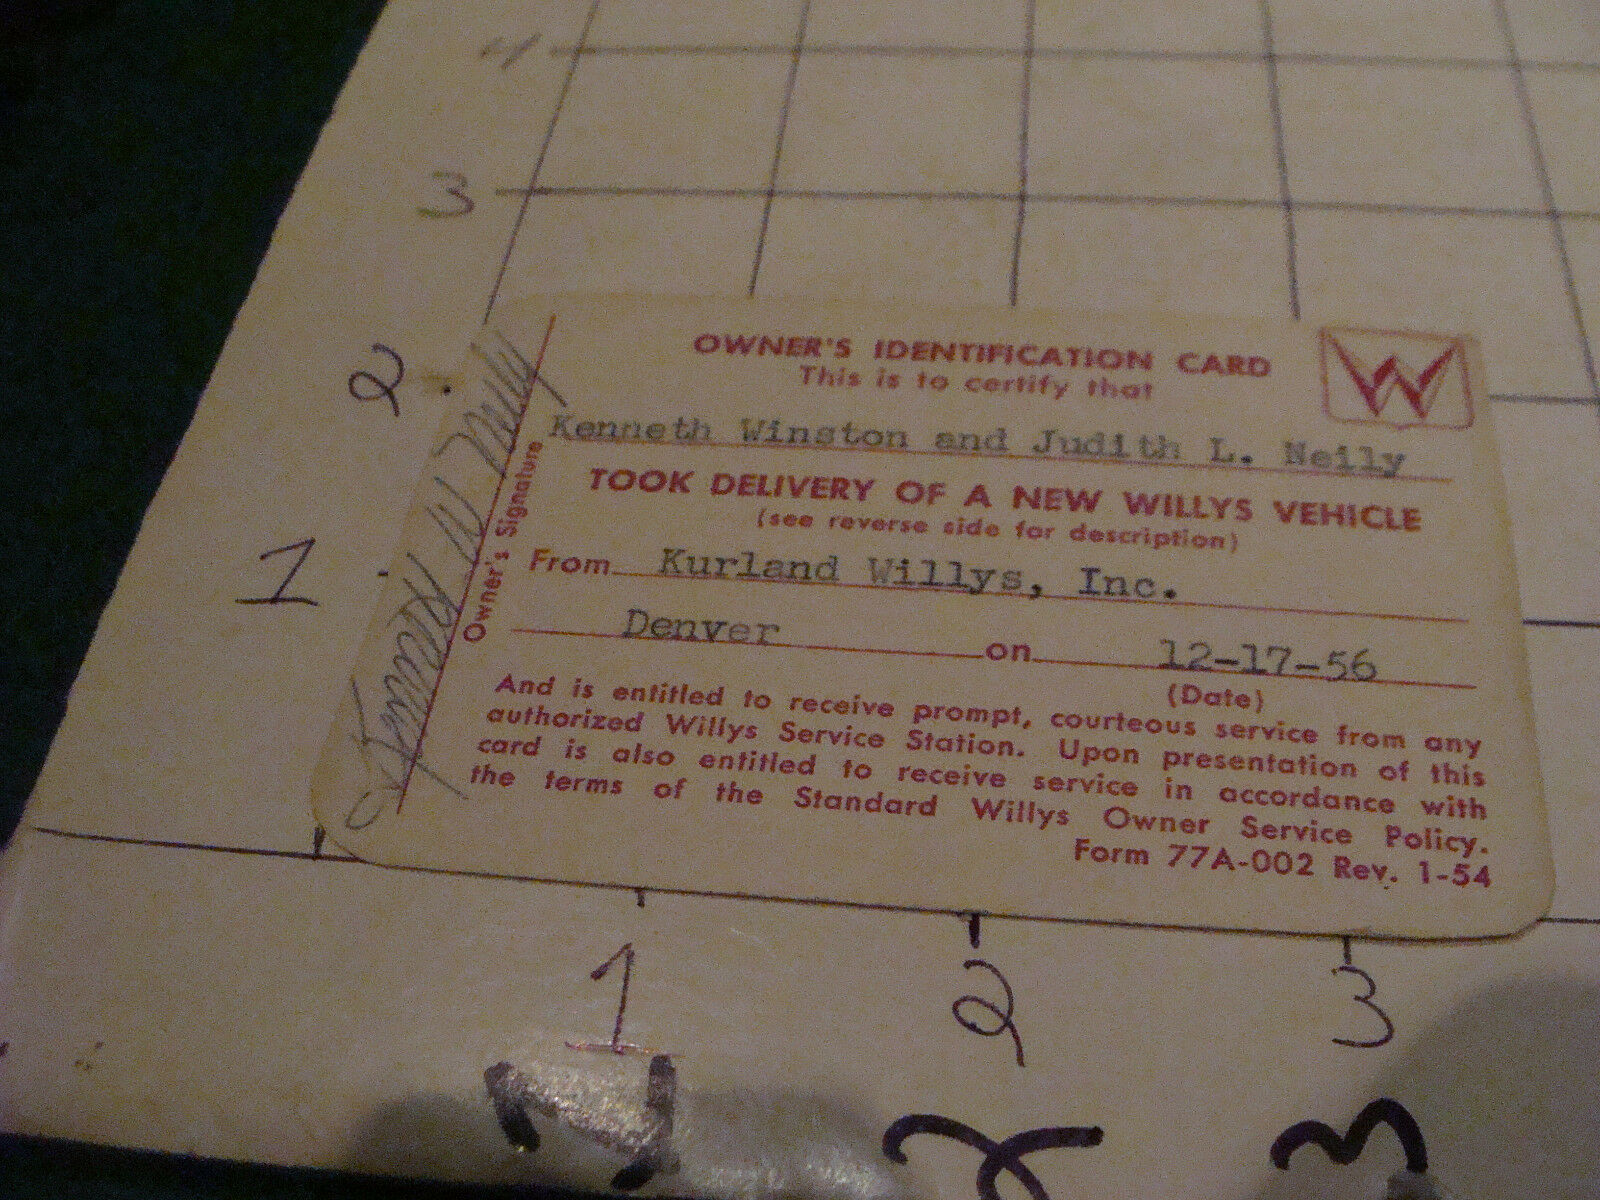 4
3
2
1
OWNER'S IDENTIFICATION CARD
W
This is to certify that
Kenneth Winston and Judith L. Neily
TOOK DELIVERY OF A NEW WILLYS VEHICLE
(see reverse side for description)
From Kurland Willys, Inc.
Denver on 12-17-56
(Date)
And is entitled to receive prompt, courteous service from any
authorized Willys Service Station. Upon presentation of this
card is also entitled to receive service in accordance with
the terms of the Standard Willys Owner Service Policy.
Form 77A-002 Rev. 1-54
Owner's Signature
W Neily
1 2 3